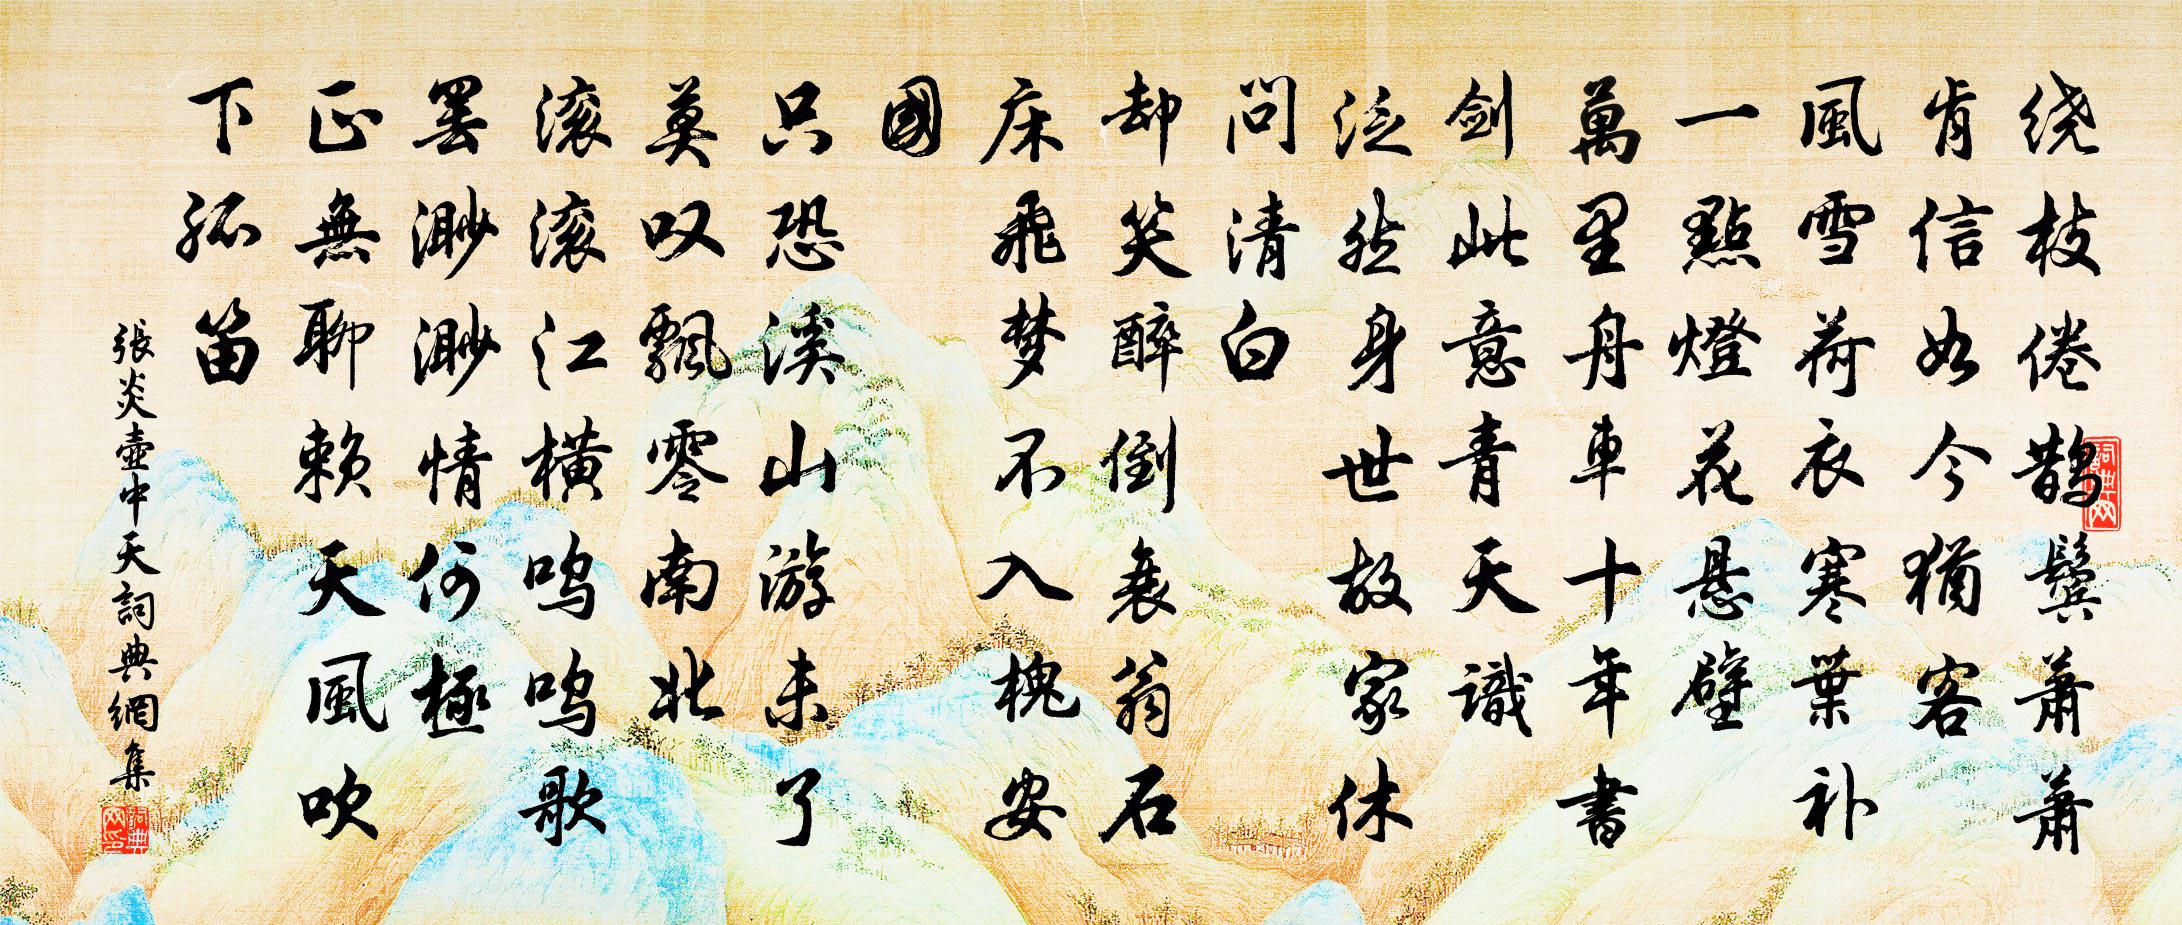 绕枝倦鹊鬓萧萧
肯信如今犹客
風雪荷衣寒葉补
一點燈花悬壁
萬里舟車十年書
剑此意青天識
泛然身世故家休
問清白
却笑醉倒衰翁石
床飛梦不入槐安
國
只恐溪山游未了
莫叹飄零南北
滚滚江横呜呜歌
罢渺渺情何極
正無聊赖天風吹
下孤笛
張炎壶中天詞典網集
詞典網